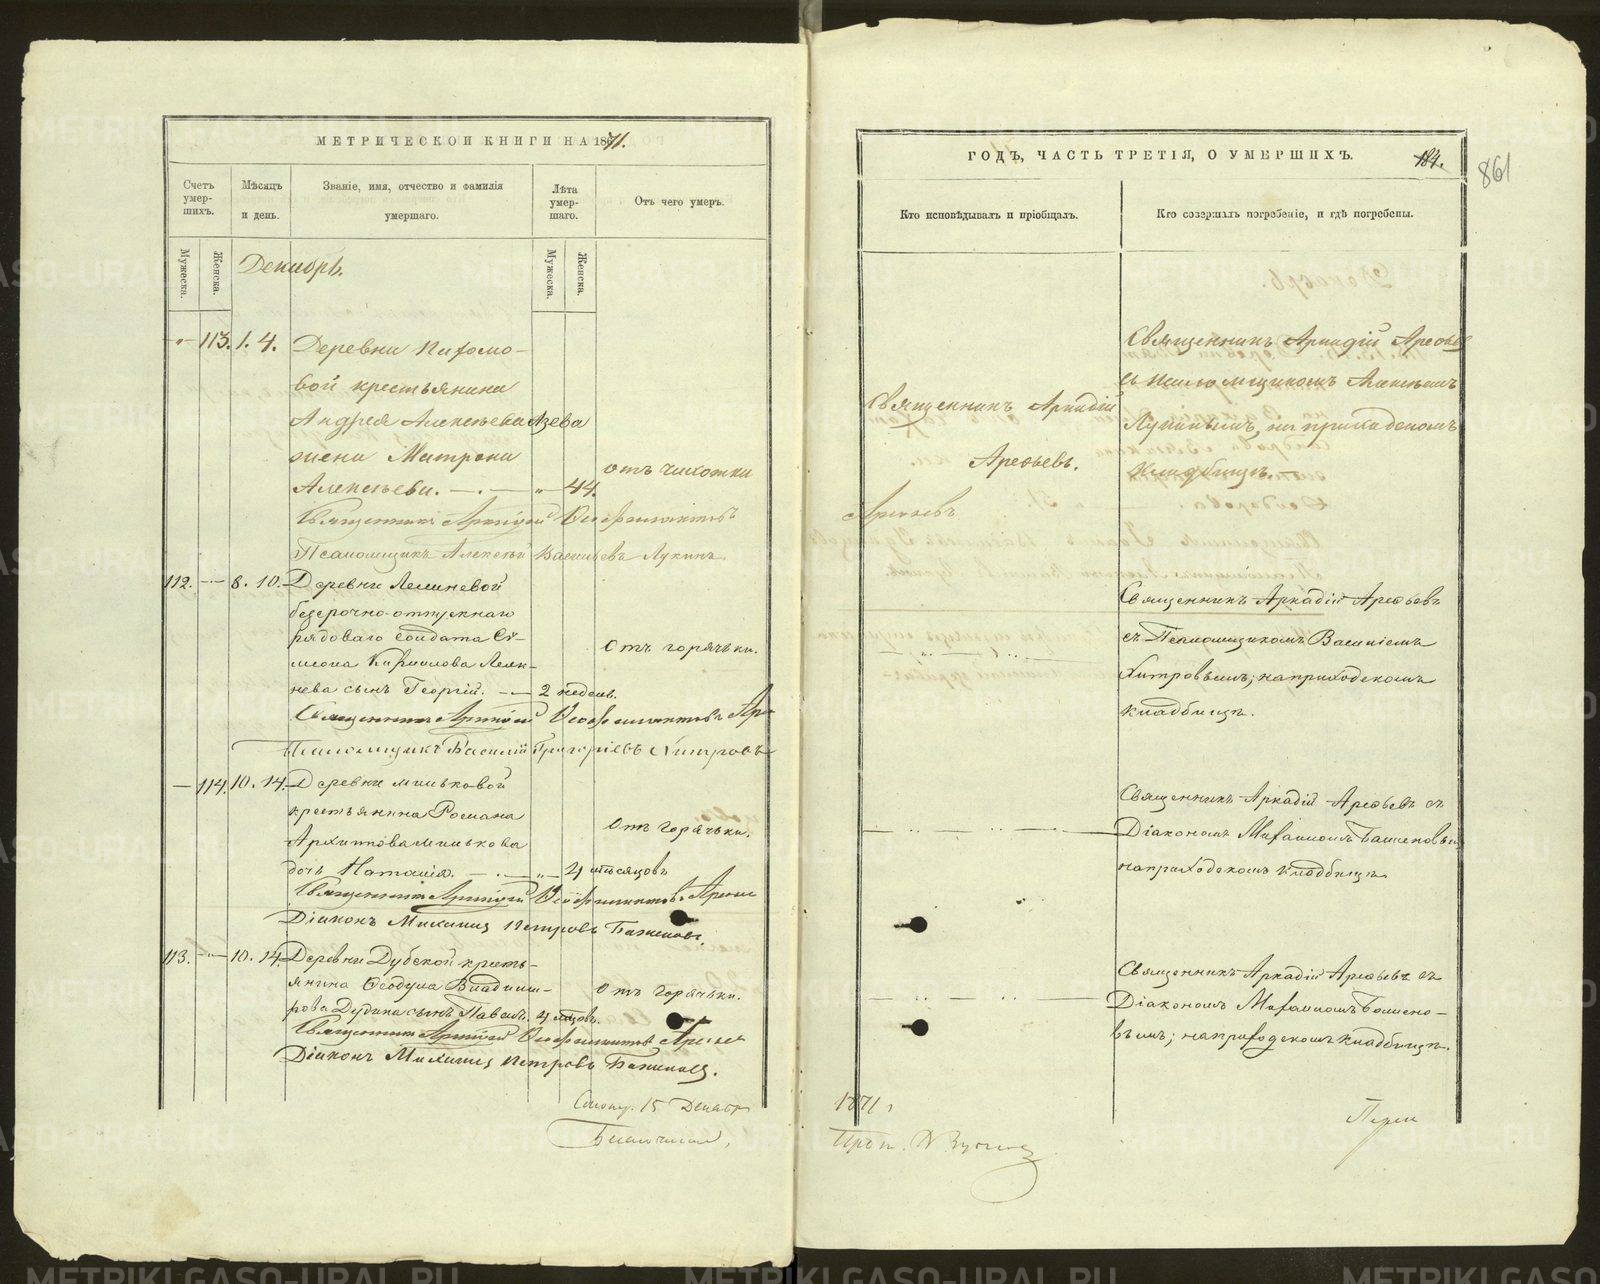 МЕТРИЧЕСКОЙ КНИГИ НА 1871.
Счетъ умер-шихъ.
Мѣсяцъ и день.
Званіе, имя, отчество и фамилія умершаго.
Лѣта умер-шаго.
Отъ чего умеръ.
Мужеска.
Женска.
Мужеска.
Женска.
Декабрь.
113. 1. 4. Деревни Пахомо-
вой крестьянина
Андрея Алексѣева Азева
жена Матрона
Алексѣева. 44. отъ чахотки
Священникъ Аркадій Ѳеофилактовъ
Псаломщикъ Алексѣй Васильевъ Лукинъ
112. 8. 10. Деревни
безсрочно-отпускнаго
рядоваго солдата Си-
меона Кириллова
нева сынъ Георгій. 2 недель. Отъ горячьки.
Священникъ Аркадій Ѳеофилактовъ
Псаломщикъ Василій Григорьевъ Хитровъ
114. 10. 14. Деревни Мильковой
крестьянина Романа
Архипова Милькова
дочь Наталія. 4 мѣсяцовъ Отъ горячьки.
Священникъ Аркадій Ѳеофилактовъ
Діаконъ Михаилъ Петровъ Баженовъ.
113. 10. 14. Деревни Дубской кресть-
янина Ѳеодула Владими-
рова Дубина сынъ Павелъ. 4 мѣцовъ. Отъ горячьки.
Священникъ Аркадій Ѳеофилактовъ
Діаконъ Михаилъ Петровъ Баженовъ.
15 Декабр
ГОДЪ, ЧАСТЬ ТРЕТІЯ, О УМЕРШИХЪ.
184.
861
Кто исповѣдывалъ и пріобщалъ.
Кто совершалъ погребеніе, и гдѣ погребены.
Священникъ Аркадій
Арефьевъ.
Арефьевъ
Священникъ Аркадій Арефьевъ
съ псаломщикомъ Алексѣемъ
Лукинымъ, на приходскомъ
кладбищѣ.
Священникъ Аркадій Арефьевъ
съ Псаломщикомъ Василіемъ
Хитровымъ; на приходскомъ
кладбищѣ.
Священникъ Аркадій Арефьевъ съ
Діакономъ Михаиломъ Баженовымъ
на приходскомъ кладбищѣ
Священникъ Аркадій Арефьевъ съ
Діакономъ Михаиломъ Бажено-
вымъ; на приходскомъ кладбищѣ.
1871
METRIKI.GASO-URAL.RU